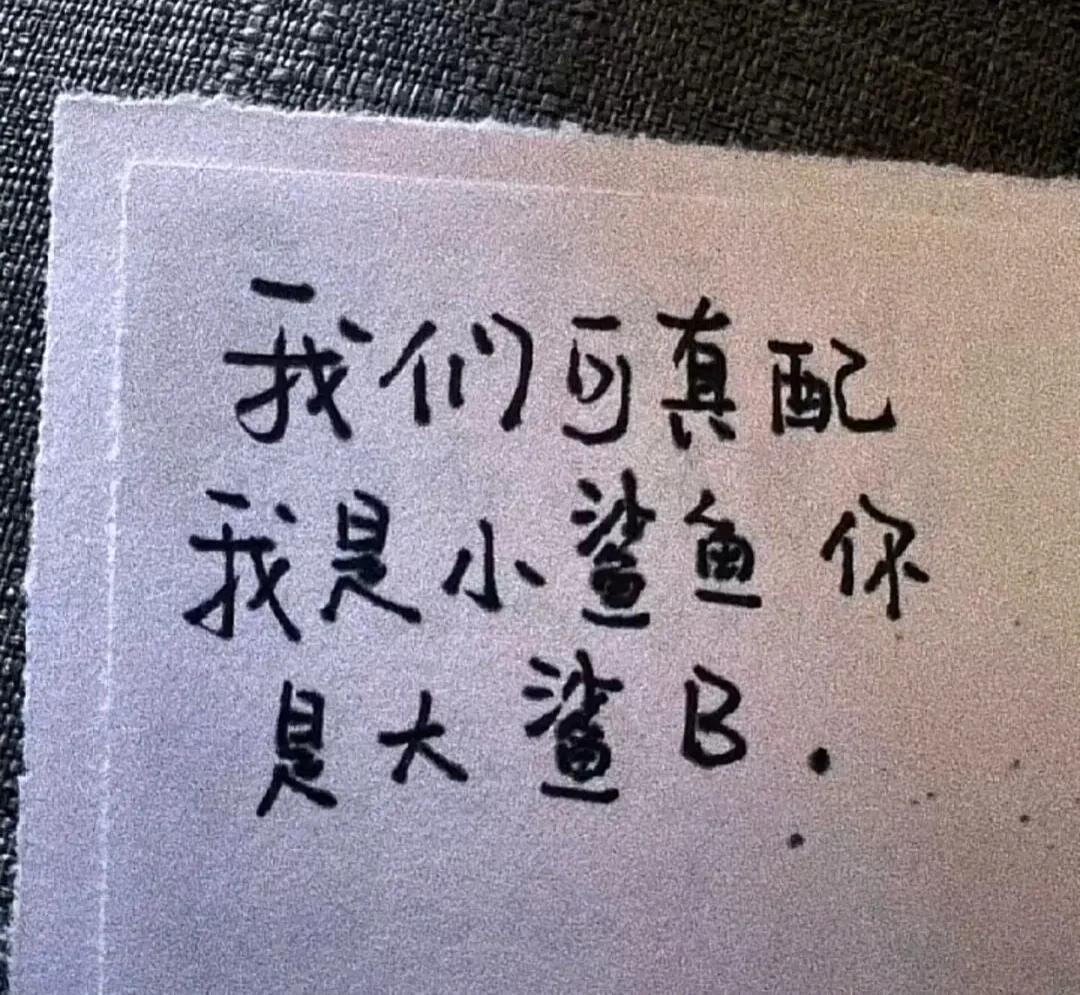 我们可真配
我是小鲨鱼你
是大鲨B.